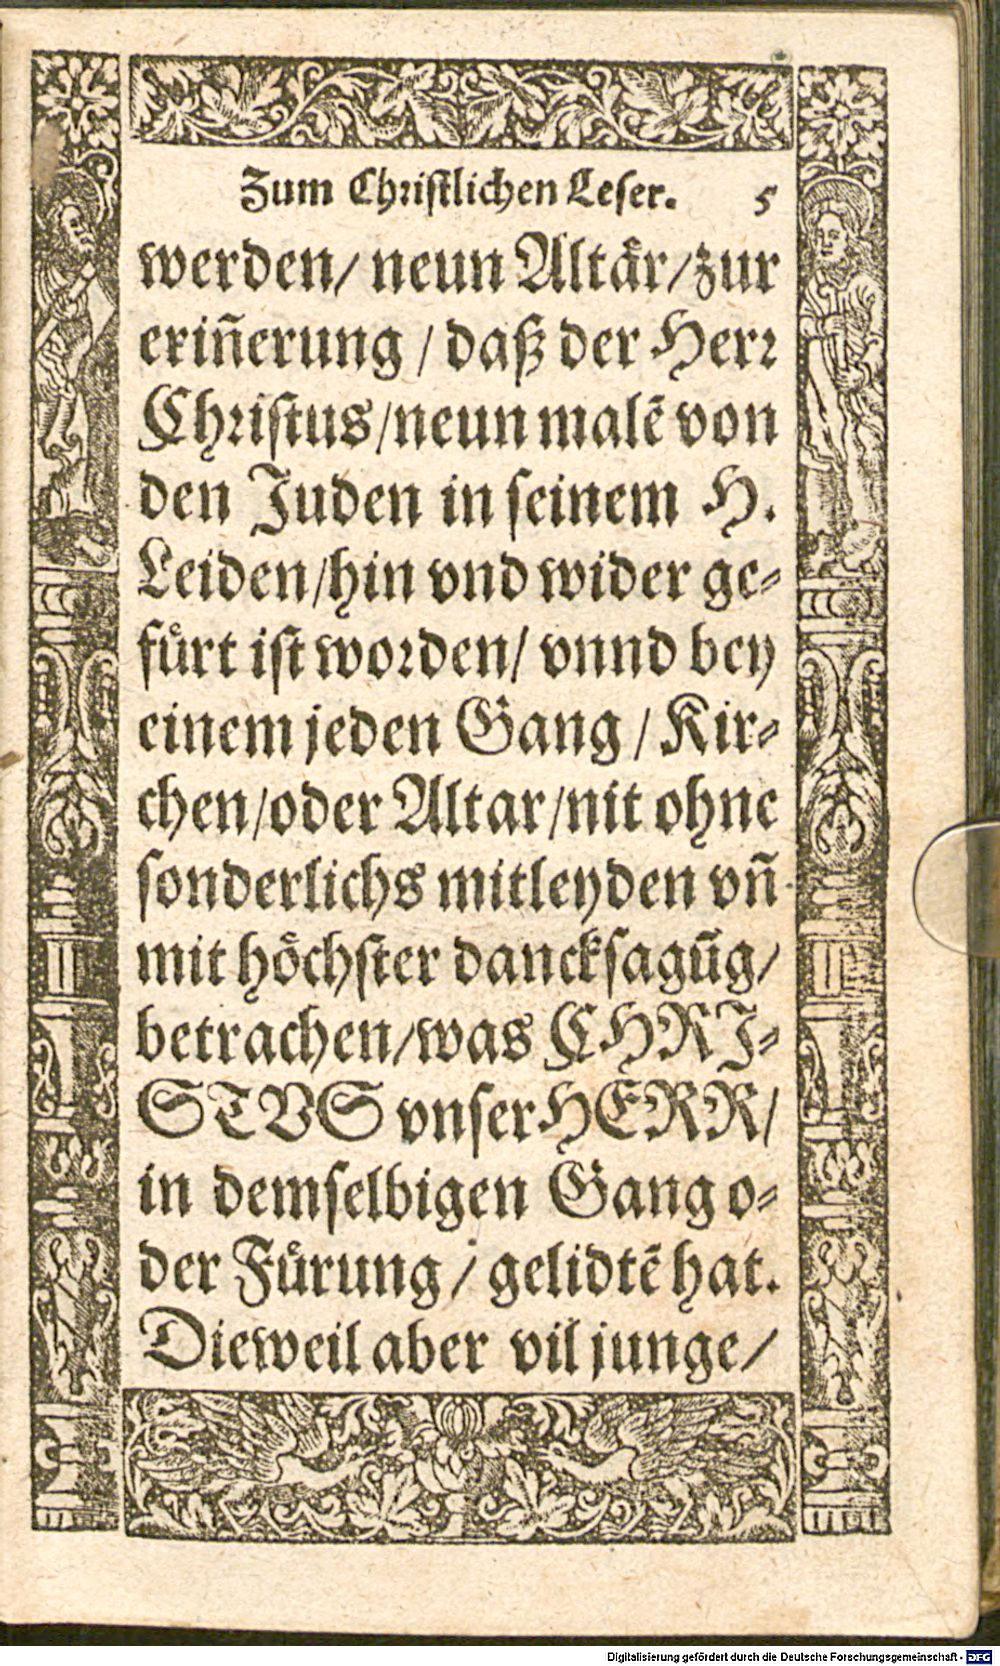 Zum Christlichen Leser. 5
werden/ neun Altaͤr/zur
eriñerung / daß der Herr
Christus/neun malẽ von
den Juden in seinem H.
Leiden/hin vnd wider ge-
fuͤrt ist worden/ vnnd bey
einem jeden Gang / Kir-
chen/oder Altar/nit ohne
sonderlichs mitleyden vñ
mit hoͤchster dancksagũg/
betrachen/was CHRI-
STVS vnser HERR/
in demselbigen Gang o-
der Fuͤrung / gelidtẽ hat.
Dieweil aber vil junge/
Digitalisierung gefördert durch die Deutsche Forschungsgemeinschaft - DFG